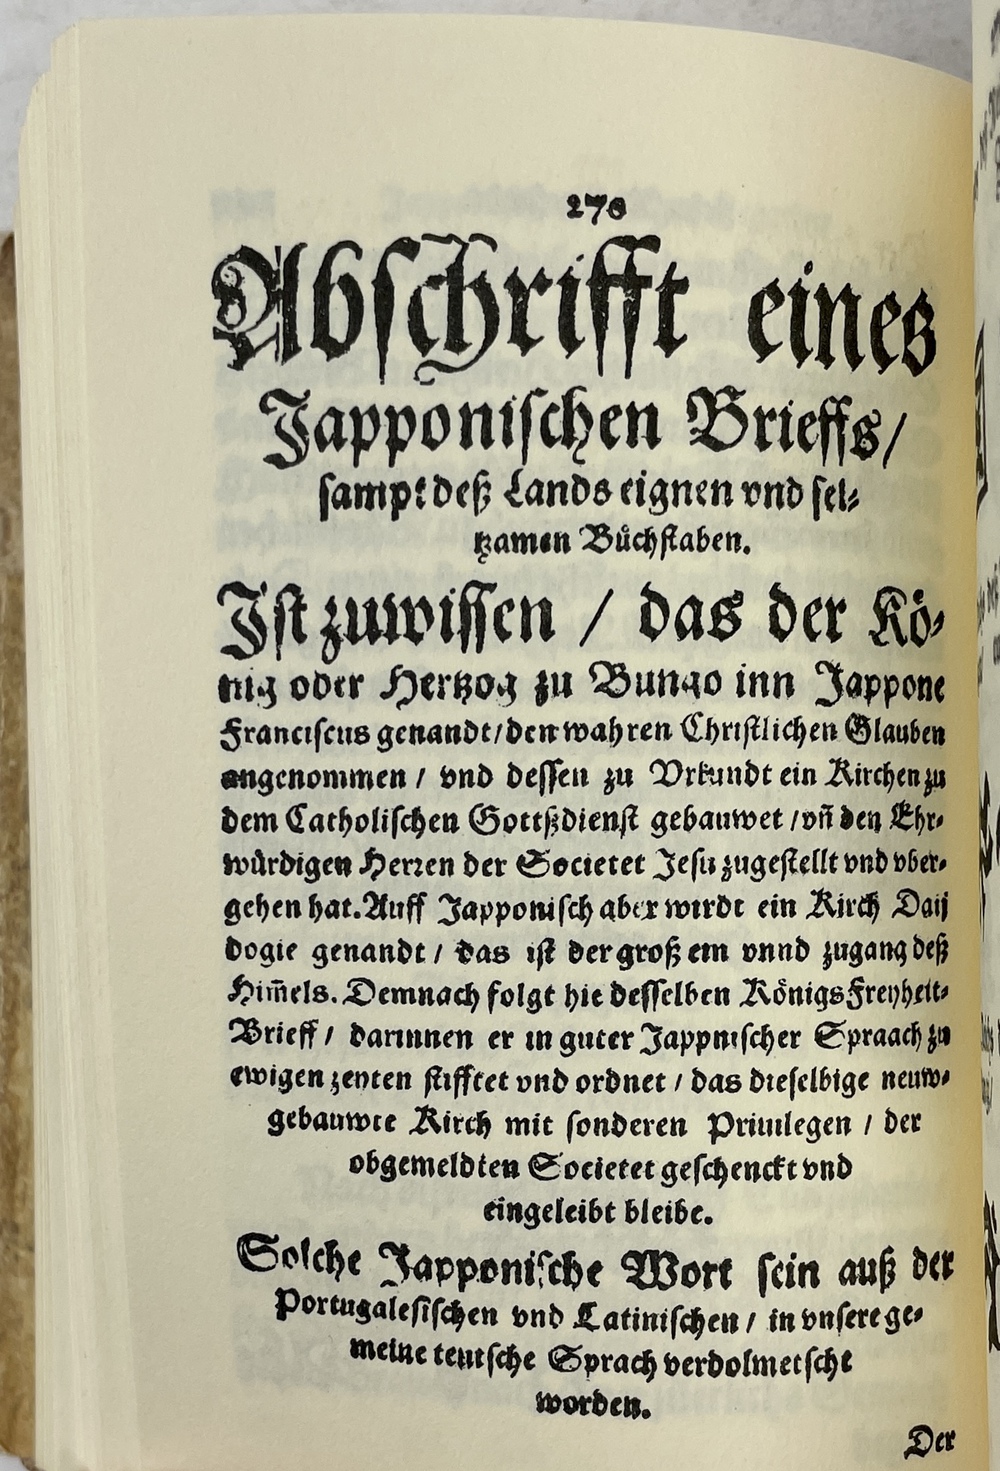 270
Abschrifft eines
Japponischen Brieffs /
sampt deß Lands eignen vnd sel⸗
tzamen Bůchstaben.
Ist zuwissen / das der Kö⸗
nig oder Hertzog zu Bungo inn Jappone
Franciscus genandt / den wahren Christlichen Glauben
angenommen / vnd dessen zu Vrkundt ein Kirchen zu
dem Catholischen Gottßdienst gebauwet / vñ den Ehr⸗
würdigen Herren der Societet Jesu zugestellt vnd vber⸗
gehen hat. Auff Japponisch aber wirdt ein Kirch Daij
dogie genandt / das ist der groß ein vnnd zugang deß
Him̃els. Demnach folgt hie desselben Königs Freyheit⸗
Brieff / darinnen er in guter Jappnischer Spraach zu
ewigen zeyten stifftet vnd ordnet / das dieselbige neuw⸗
gebauwte Kirch mit sonderen Priuilegen / der
obgemeldten Societet geschenckt vnd
eingeleibt bleibe.
Solche Japponische Wort sein auß der
Portugalesischen vnd Latinischen / in vnsere ge⸗
meine teutsche Sprach verdolmetscht
worden.
Der